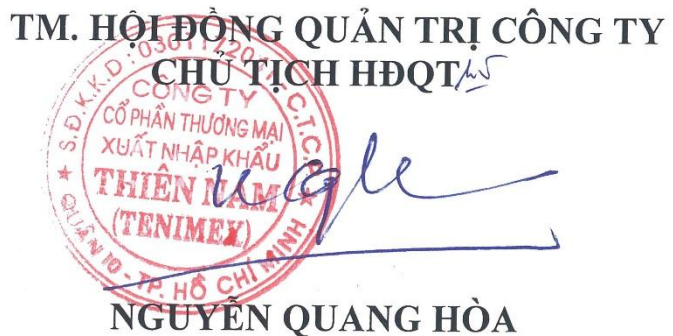 TM. HỘI ĐỒNG QUẢN TRỊ CÔNG TY
CHỦ TỊCH HĐQT
S.Đ.K.K.D: C.T.C.P
CÔNG TY
CỔ PHẦN THƯƠNG MẠI
XUẤT NHẬP KHẨU
THIÊN NAM
(TENIMEX)
QUẬN 10 - TP. HỒ CHÍ MINH
NGUYỄN QUANG HÒA